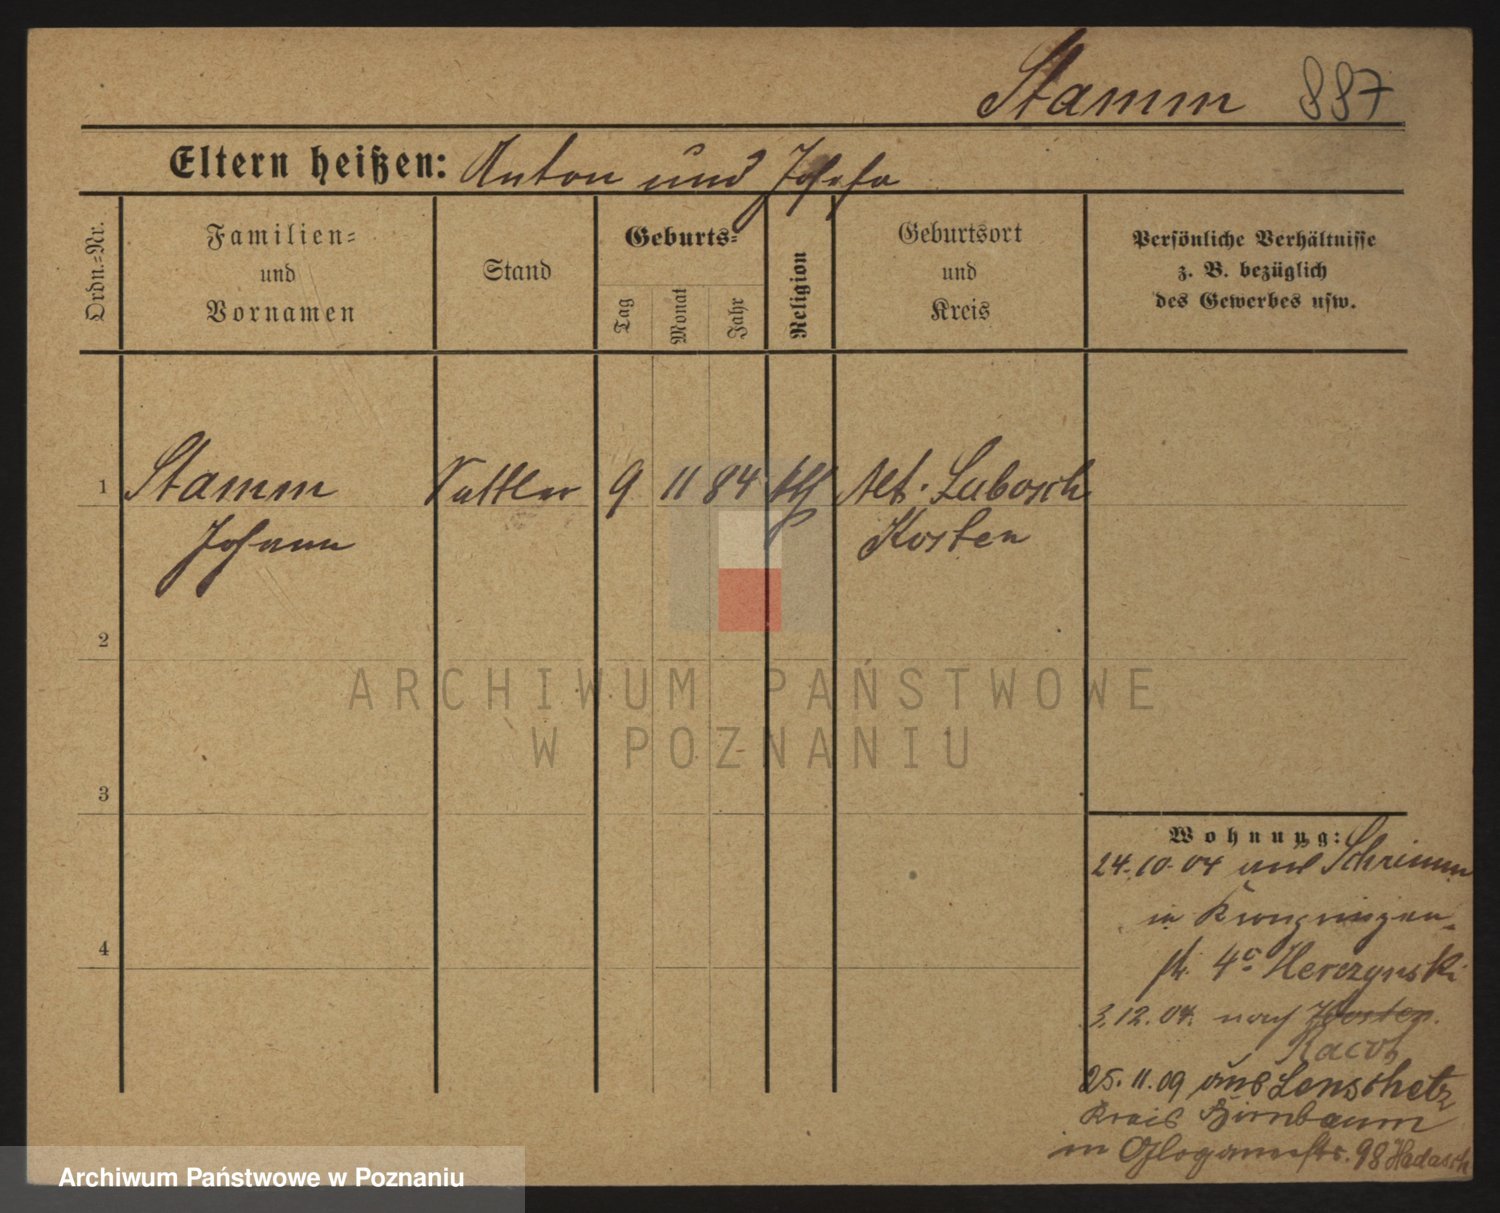 Stamm 887
Eltern heißen: Anton und Josefa
Ordn.=Nr.
Familien=
und
Vornamen
Stand
Geburts=
Tag
Monat
Jahr
Religion
Geburtsort
und
Kreis
Persönliche Verhältnisse
z. B. bezüglich
des Gewerbes usw.
1 Stamm Sattler 9 11 84 kth Alt. Lubosch
Johann Kosten
2
3
4
Wohnung:
24.10.04 aus Schrimm
in Kronprinzen-
str. 4c Herczynski
3.12.04. nach Kosten.
Racot
25.11.09 aus Lenschetz
Kreis Birnbaum
in Glogauerstr. 98 Hadasch
ARCHIWUM PAŃSTWOWE
W POZNANIU
Archiwum Państwowe w Poznaniu